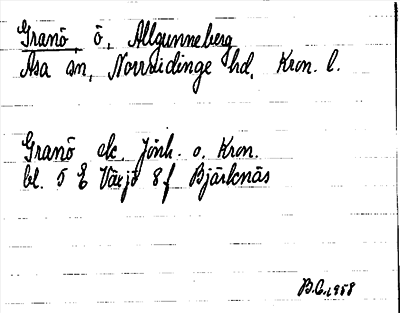 Granö, ö, Allgunneberg
Asa sn, Norrvidinge hd, Kron. l.
Granö ek. Jönk. o. Kron.
bl. 5 E Växjö 8 f Bjärknäs
B.C. 1958